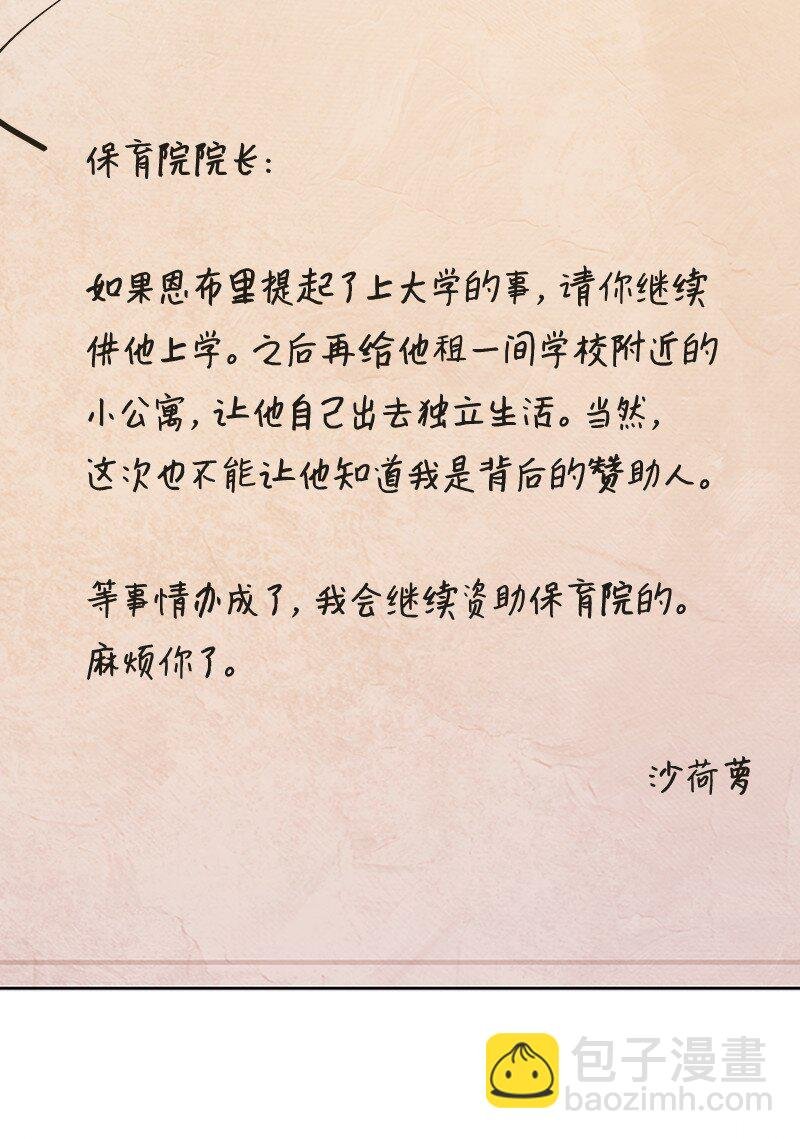 保育院院长：
如果恩布里提起了上大学的事，请你继续
供他上学。之后再给他租一间学校附近的
小公寓，让他自己出去独立生活。当然，
这次也不能让他知道我是背后的赞助人。
等事情办成了，我会继续资助保育院的。
麻烦你了。
沙荷萝
包子漫畫
baozimh.com